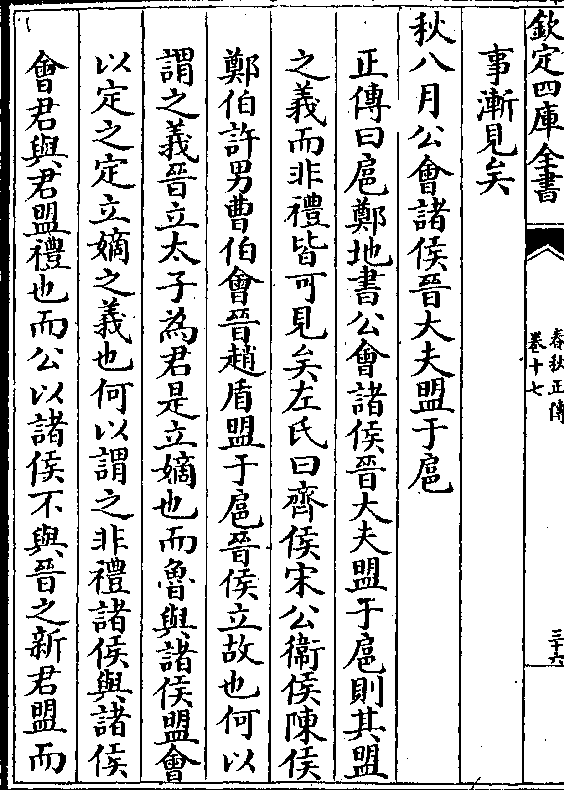 欽定四庫全書
春秋正傳
卷十七
三十六
事漸見矣
秋八月公會諸侯晉大夫盟于扈
正傳曰扈鄭地書公會諸侯晉大夫盟于扈則其盟
之義而非禮皆可見矣左氏曰齊侯宋公衞侯陳侯
鄭伯許男曹伯會晉趙盾盟于扈晉侯立故也何以
謂之義晉立太子為君是立嫡也而魯與諸侯盟會
以定之定立嫡之義也何以謂之非禮諸侯與諸侯
會君與君盟禮也而公以諸侯不與晉之新君盟而